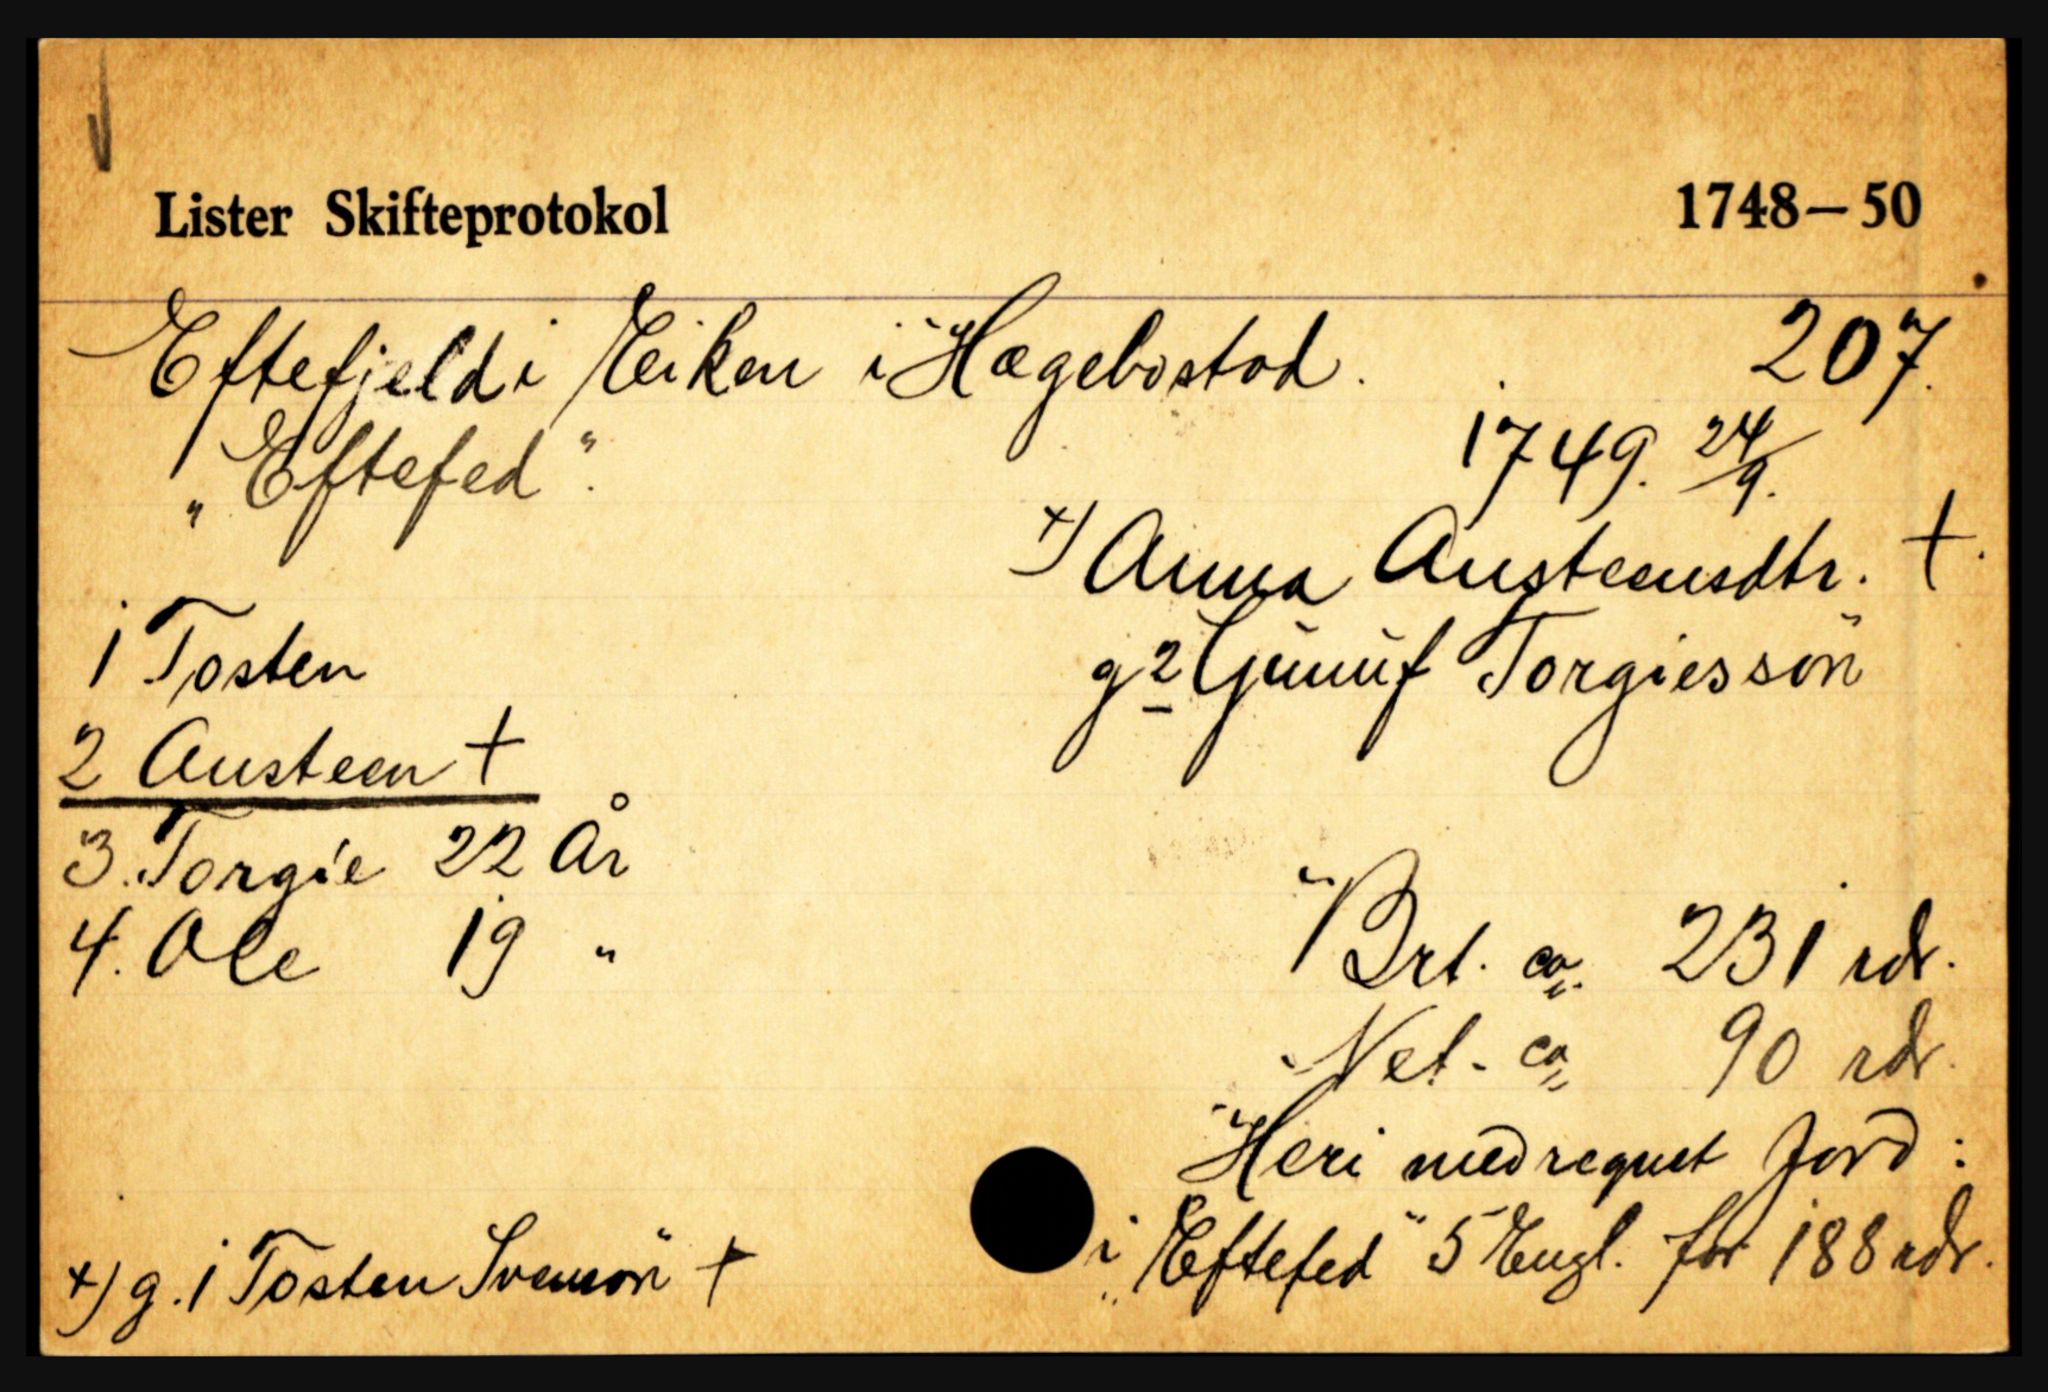 Lister Skifteprotokol 1748–50
Eftefjeld i Eiken i Hægebostad. 207.
„Eftefed”. 1749. 24/9.
+) Anna Austeensdtr. +.
1 Tosten g 2 Gunuf Torgiessön
2 Austeen +
3. Torgie 22 År
4. Ole 19 "
Brt. ca. 231 rdr.
Net. ca. 90 rdr.
Heri medregnet Jord:
i „Eftefed” 5 Engl. for 188 rdr.
+) g. 1 Tosten Svensön +